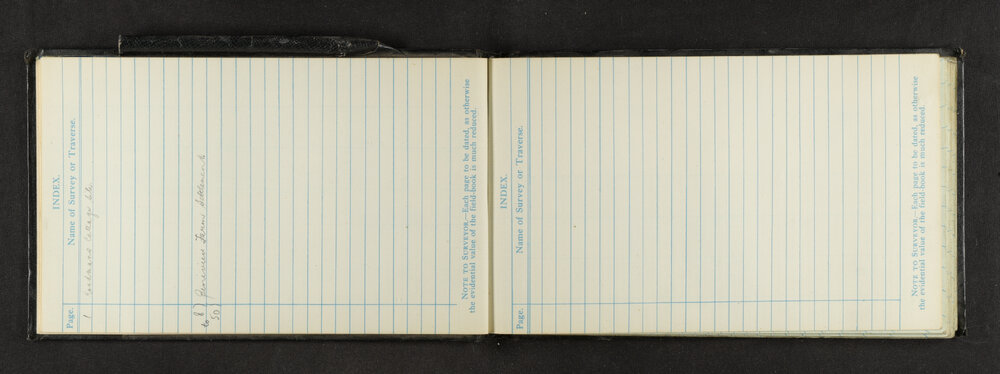 INDEX.
Page. Name of Survey or Traverse.
1
8 to 50 } Farms Settlement
NOTE TO SURVEYOR.—Each page to be dated, as otherwise
the evidential value of the field-book is much reduced.
INDEX.
Page. Name of Survey or Traverse.
NOTE TO SURVEYOR.—Each page to be dated, as otherwise
the evidential value of the field-book is much reduced.